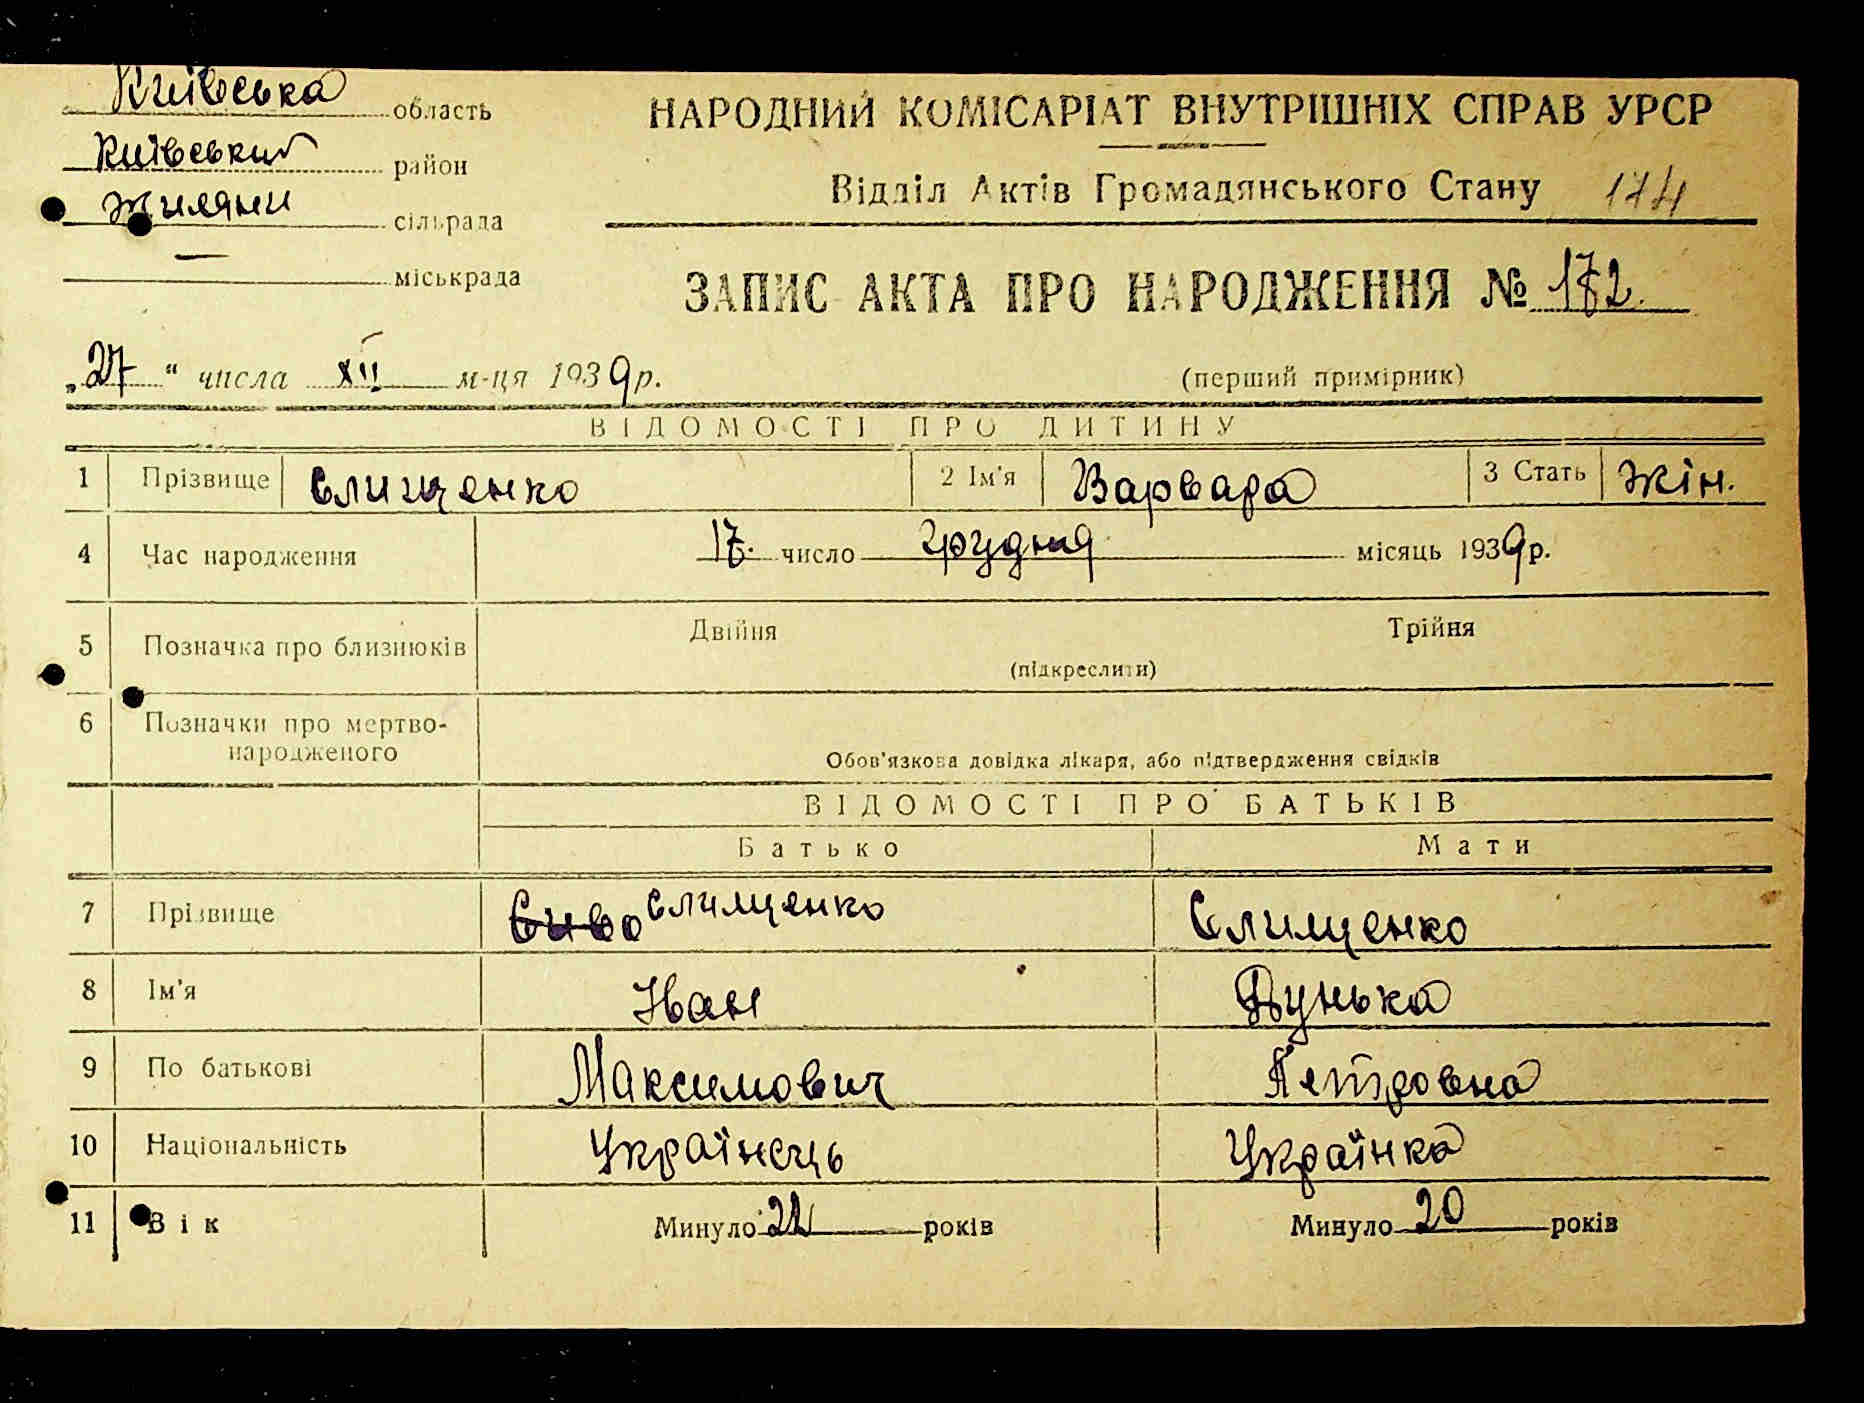 Київська область
Київський район
Жиляни сільрада
— міськрада
НАРОДНИЙ КОМІСАРІАТ ВНУТРІШНІХ СПРАВ УРСР
Відділ Актів Громадянського Стану 174
ЗАПИС АКТА ПРО НАРОДЖЕННЯ № 172.
„27“ числа XII м-ця 1939 р.
(перший примірник)
ВІДОМОСТІ ПРО ДИТИНУ
1 Прізвище Єлищенко 2 Ім'я Варвара 3 Стать Жін.
4 Час народження 17. число грудня місяць 1939 р.
5 Позначка про близнюків Двійня Трійня
(підкреслити)
6 Позначки про мертво-
народженого
Обов'язкова довідка лікаря, або підтвердження свідків
ВІДОМОСТІ ПРО БАТЬКІВ
Батько Мати
7 Прізвище Єлищенко Єлищенко
8 Ім'я Іван Дунька
9 По батькові Максимович Петровна
10 Національність Українець Українка
11 Вік Минуло 22 років Минуло 20 років